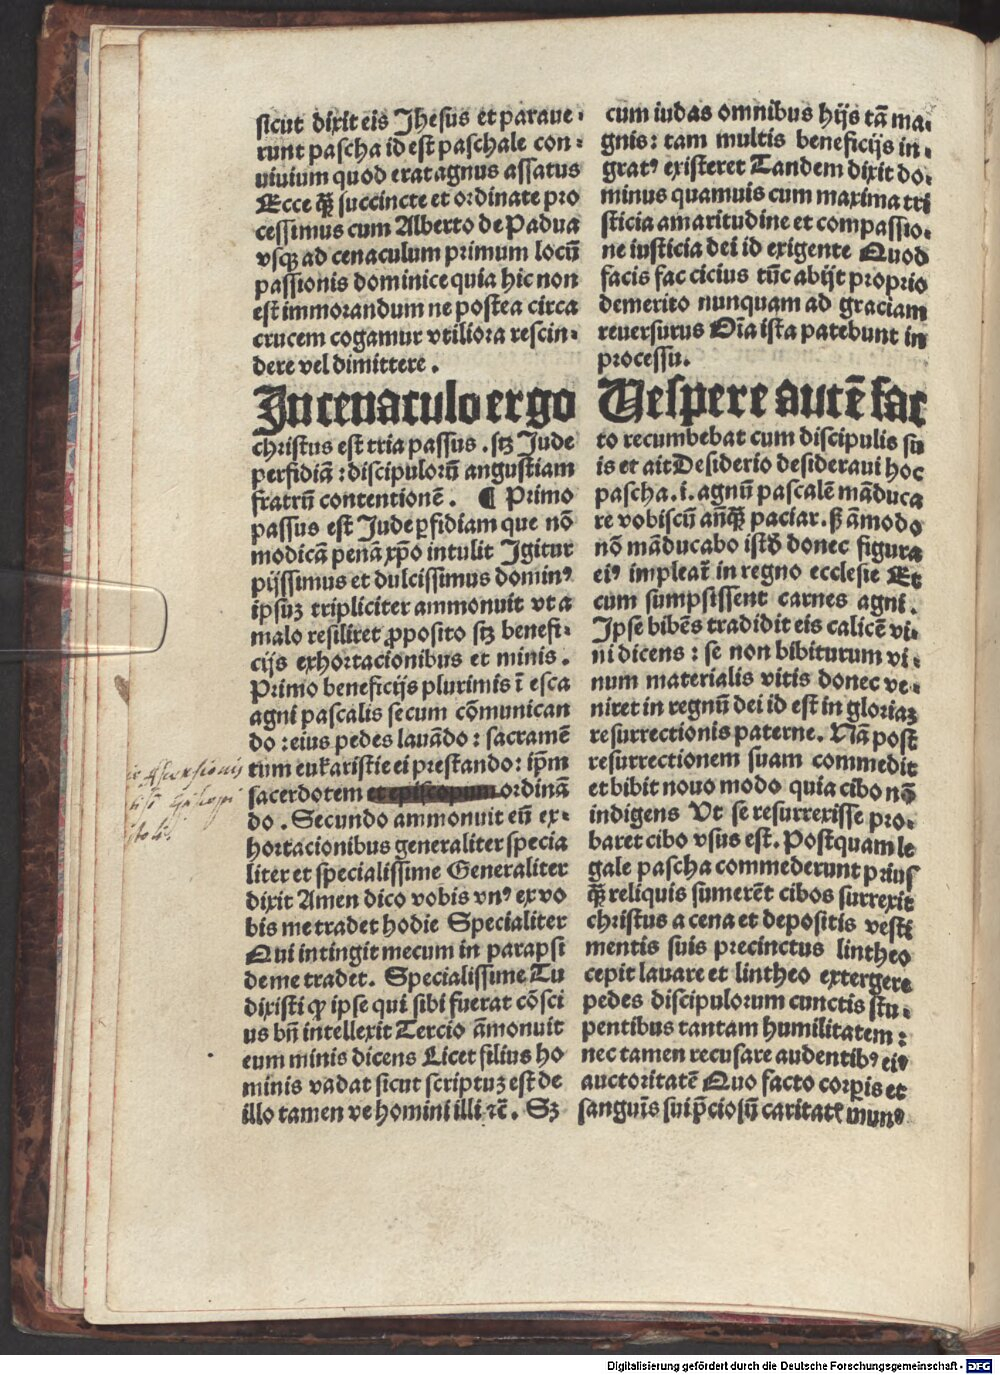 sicut dixit eis Jhesus et paraue⸗
runt pascha id est paschale con⸗
uiuium quod erat agnus assatus
Ecce q̄ꝫ succincte et ordinate pro
cessimus cum Alberto de Padua
vsqꝫ ad cenaculum primum locū
passionis dominice quia hic non
est immorandum ne postea circa
crucem cogamur vtiliora rescin⸗
dere vel dimittere.
In cenaculo ergo
christus est tria passus. sꝫ Jude
perfidiā: discipulorū angustiam
fratrū contentionē. ¶ Primo
passus est Jude ꝑfidiam que nō
modicā penā xp̄o intulit Igitur
pijssimus et dulcissimus dominꝰ
ipsuꝫ tripliciter ammonuit vt a
malo resiliret ꝓposito sꝫ benefi⸗
cijs exhortacionibus et minis.
Primo beneficijs plurimis ī esca
agni pascalis secum cōmunican
do: eius pedes lauādo: sacramē
tum eukaristie ei prestando: ip̄m
sacerdotem et episcopum ordinā
do. Secundo ammonuit eū ex⸗
hortacionibus generaliter specia
liter et specialissime Generaliter
dixit Amen dico vobis vnꝰ ex vo
bis me tradet hodie Specialiter
Qui intingit mecum in parapsi
de me tradet. Specialissime Tu
dixisti ꝙ ipse qui sibi fuerat cōsci
us bn̄ intellexit Tercio āmonuit
eum minis dicens Licet filius ho
minis vadat sicut scriptuꝫ est de
illo tamen ve homini illi ⁊c̄. Sꝫ
cum iudas omnibus hijs tā ma⸗
gnis: tam multis beneficijs in⸗
gratꝰ existeret Tandem dixit do⸗
minus quamuis cum maxima tri
sticia amaritudine et compassio⸗
ne iusticia dei id exigente Quod
facis fac cicius tūc abijt proprio
demerito nunquam ad graciam
reuersurus Oīa ista patebunt in
processu.
Vespere autē fac
to recumbebat cum discipulis su
is et ait Desiderio desideraui hoc
pascha. i. agnū pascalē māduca
re vobiscū an̄q̄ꝫ paciar. ß āmodo
nō māducabo istd̄ donec figura
eiꝰ impleat̄ in regno ecclesie Et
cum sumpsissent carnes agni.
Ipse bibēs tradidit eis calicē vi⸗
ni dicens: se non bibiturum vi⸗
num materialis vitis donec ve⸗
niret in regnū dei id est in gloriaꝫ
resurrectionis paterne. Nā post
resurrectionem suam commedit
et bibit nouo modo quia cibo nō
indigens Vt se resurrexisse pro⸗
baret cibo vsus est. Postquam le
gale pascha commederunt prius
q̄ꝫ reliquis sumerēt cibos surrexit
christus a cena et depositis vesti
mentis suis precinctus lintheo
cepit lauare et lintheo extergere
pedes discipulorum cunctis stu⸗
pentibus tantam humilitatem:
nec tamen recusare audentibꝰ eiꝰ
auctoritatē Quo facto corꝑis et
sanguīs sui p̄ciosū caritatꝭ munꝰ
Digitalisierung gefördert durch die Deutsche Forschungsgemeinschaft - DFG